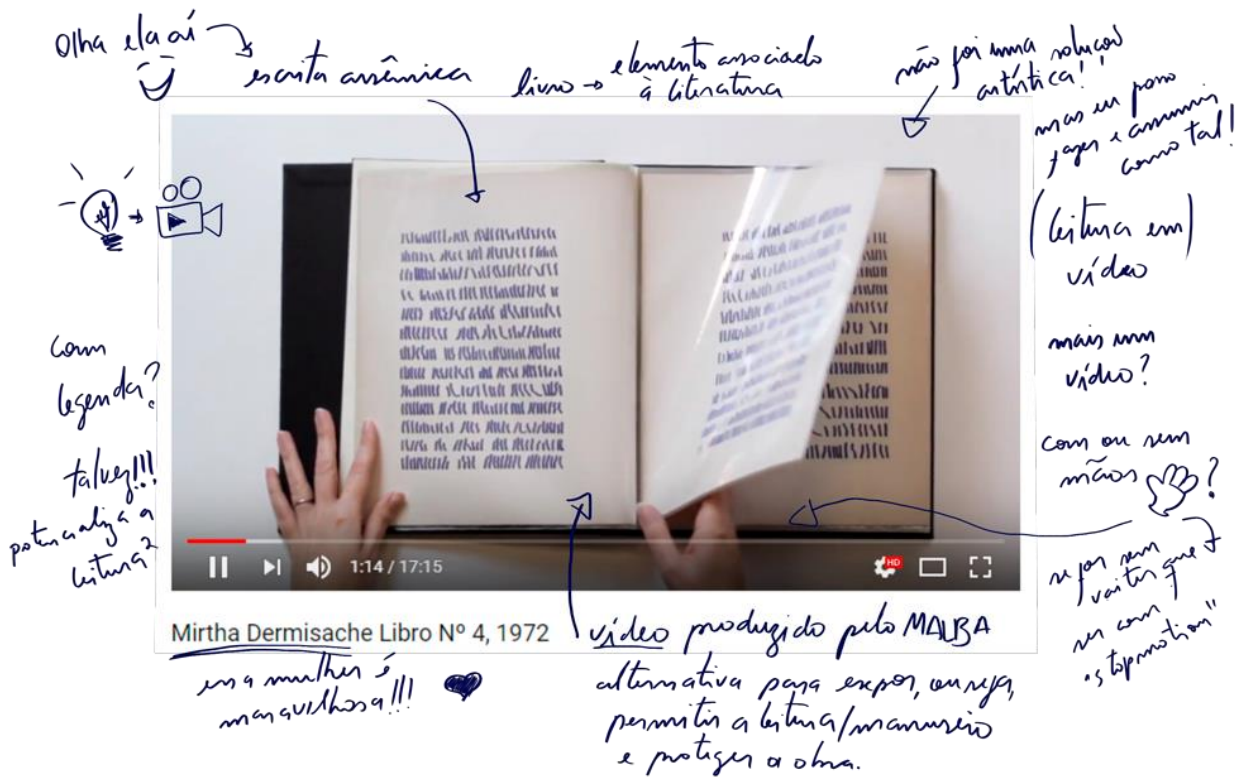 Olha ela aí
escrita assêmica
livro → elemento associado
à literatura
não foi uma solução
artística!!
mas eu posso
fazer e assumir
como tal!
(leitura em)
vídeo
mais um
vídeo?
com ou sem
mãos ?
se for sem
vai ter que
ser com
"stopmotion"
com
legenda?
talvez!!!
potencializa a
leitura?
1:14 / 17:15
HD
Mirtha Dermisache Libro Nº 4, 1972
essa mulher é
maravilhosa!!!
vídeo produzido pelo MALBA
alternativa para expor, ou seja,
permitir a leitura/manuseio
e proteger a obra.